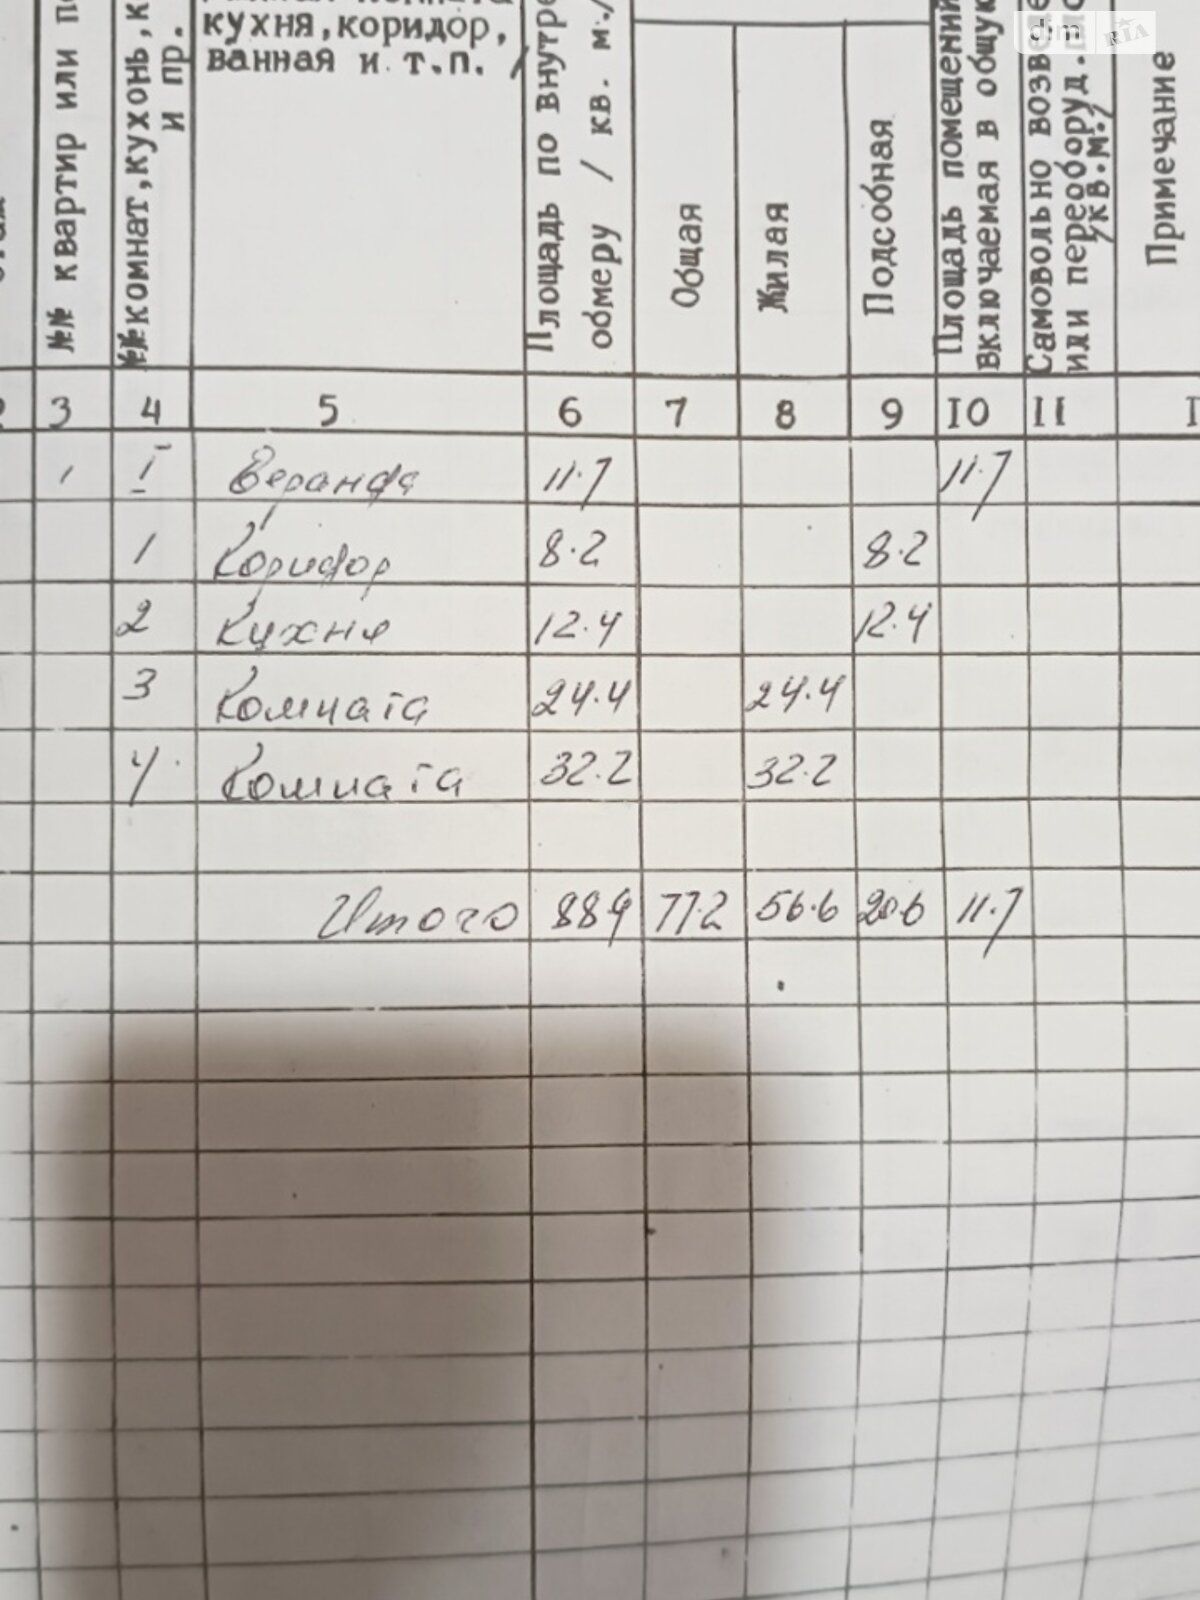 кухня, коридор,
ванная и т.п. /
№№ квартир или
№№ комнат, кухонь,
и пр.
Площадь по
обмеру / кв. м./
Общая
Жилая
Подсобная
Площадь помещений
включаемая в
Самовольно
или переоборуд.
/кв.м./
Примечание
dim RIA
3 4 5 6 7 8 9 10 11
1 I Веранда 11.7 11.7
1 Коридор 8.2 8.2
2 Кухня 12.4 12.4
3 Комната 24.4 24.4
4 Комната 32.2 32.2
Итого 88.9 77.2 56.6 20.6 11.7